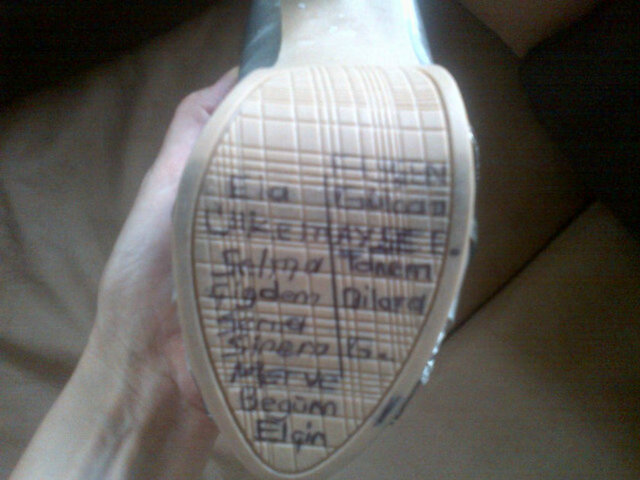 Eda
Ülkem
Selma
Çigdem
Sema
Sinem
MERVE
Begüm
Elçin
Gülcan
AYŞE E.
Tanem
Dilara
G.